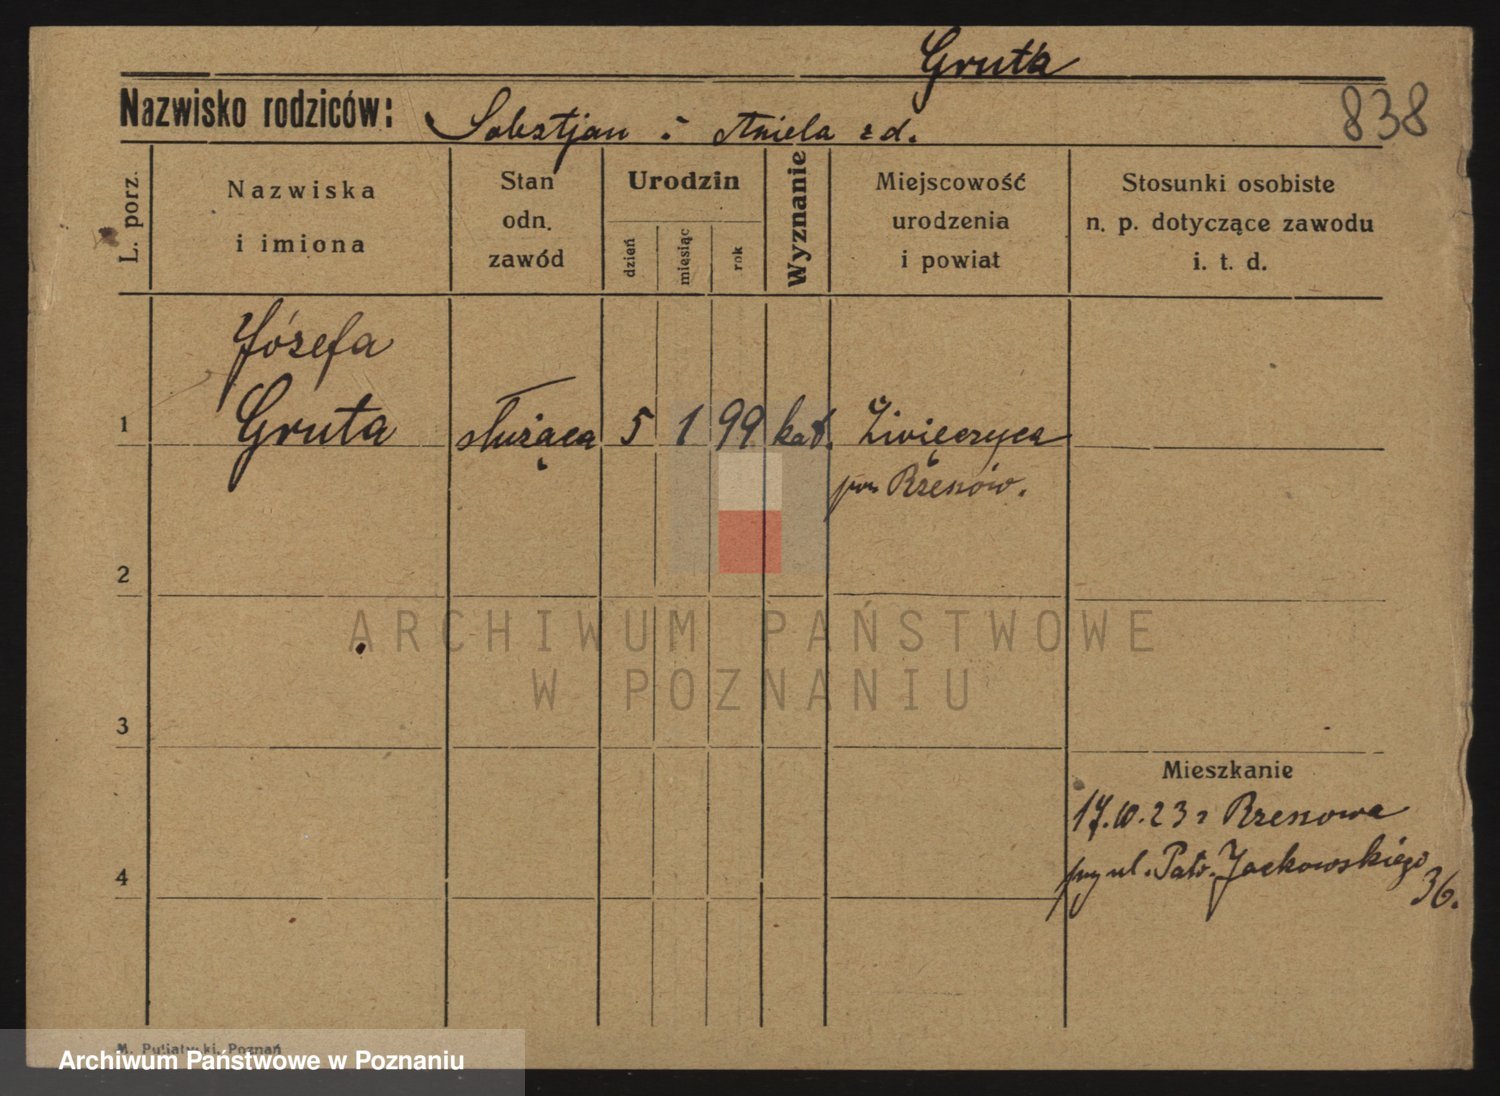 Gruta
838
Nazwisko rodziców: Sobestjan i Aniela zd.
L. porz.
Nazwiska
i imiona
Stan
odn.
zawód
Urodzin
dzień
miesiąc
rok
Wyznanie
Miejscowość
urodzenia
i powiat
Stosunki osobiste
n. p. dotyczące zawodu
i. t. d.
Józefa
1 Gruta służąca 5 1 99 kat. Zwięczyca
pow Rzeszów.
2
ARCHIWUM PAŃSTWOWE
W POZNANIU
3
Mieszkanie
17.10.23 z Rzeszowa
4 przy ul. Patr. Jackowskiego
36.
M. Putiatycki, Poznań
Archiwum Państwowe w Poznaniu